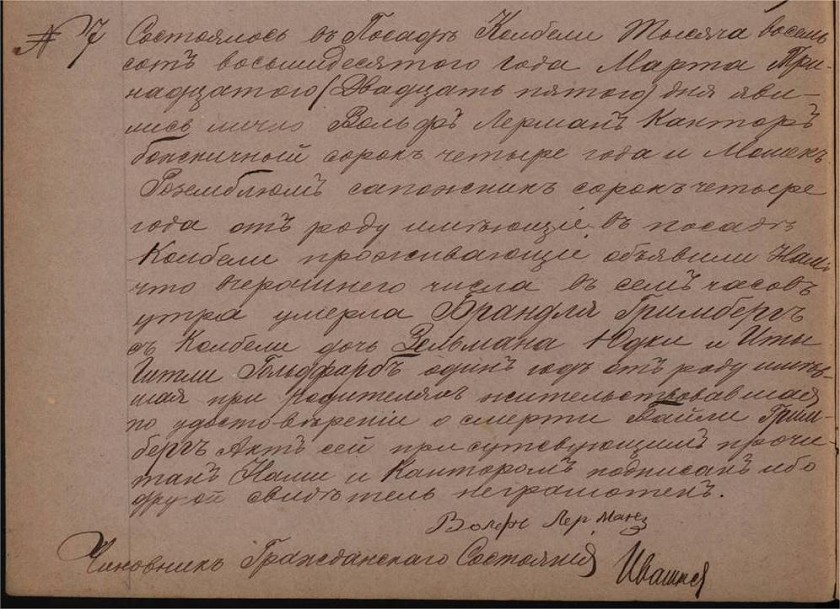 № 7 Состоялось въ Посадѣ Колбели Тысяча восемь
сотъ восьмидесятого года Марта Три-
надцатого (Двадцать пятого) дня яви-
лись лично Вольфъ Лерманъ Канторъ
божничный сорокъ четыре года и Мошекъ
Роземблюмъ сапожникъ сорокъ четыре
года отъ роду имѣющіе въ посадѣ
Колбели проживающіе объявили Намъ
что вчерашнего числа въ семъ часовъ
утра умерла Брандля Гримбергъ
въ Колбели дочь Зельмана Юдки и Иты
Гитли Гольдфарбъ одинъ годъ отъ роду имѣв-
шая при родителяхъ жительствовавшая
по удостовѣреніи о смерти Гримм-
бергъ Актъ сей присутсвующимъ прочи-
танъ Нами и Канторомъ подписанъ ибо
другой свидѣтель неграмотенъ.
Волфъ Лерманъ
Чиновникъ Гражданскаго Состоянія